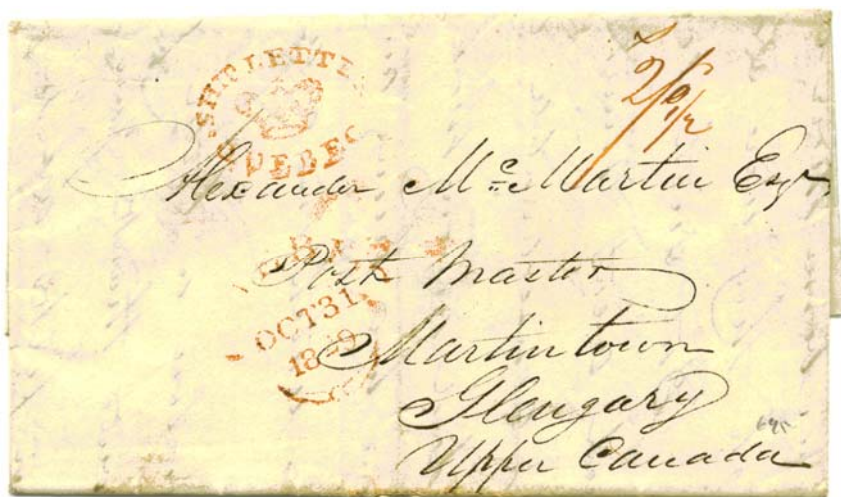 SHIP LETTER
QUEBEC
Alexander Mc. Martin Esqr
Post Master
OCT 31
1829
Martintown
Glengary
Upper Canada